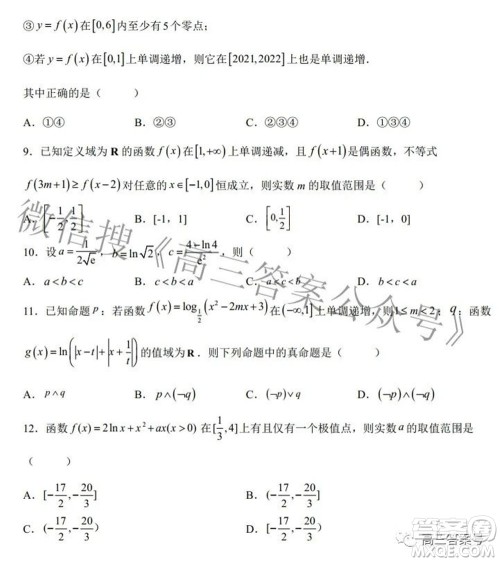 ③ y = f(x) 在 [0,6] 内至少有 5 个零点；
④若 y = f(x) 在 [0,1] 上单调递增，则它在 [2021,2022] 上也是单调递增.
其中正确的是（ ）
A．①④ B．②③ C．②③④ D．①③④
9．已知定义域为 R 的函数 f(x) 在 [1,+∞) 上单调递减，且 f(x+1) 是偶函数，不等式
f(3m+1) ≥ f(x−2) 对任意的 x∈[−1,0] 恒成立，则实数 m 的取值范围是（ ）
A. [−1/2, 1/2] B. [-1，1] C. [0, 1/2] D. [-1，0]
10．设 a = 1/(2√e)，b = ln√2，c = (4−ln4)/e²，则（ ）
A．a < b < c B．c < b < a C．a < c < b D．b < c < a
11．已知命题 p：若函数 f(x) = log_{1/2}(x²−2mx+3) 在 (−∞,1] 上单调递增，则 1 ≤ m < 2；q：函数
g(x) = ln(|x−t|+|x+1/t|) 的值域为 R．则下列命题中的真命题是（ ）
A．p∧q B．p∧(¬q) C．(¬p)∨q D．(¬p)∧(¬q)
12．函数 f(x) = 2ln x + x² + ax(x > 0) 在 [1/3, 4] 上有且仅有一个极值点，则实数 a 的取值范围是
（ ）
A．[−17/2, −20/3] B．(−17/2, −20/3]
C．(−17/2, −20/3) D．[−17/2, −20/3)
微信搜《高三答案公众号》
高三答案号
答案圈
MXQE.COM